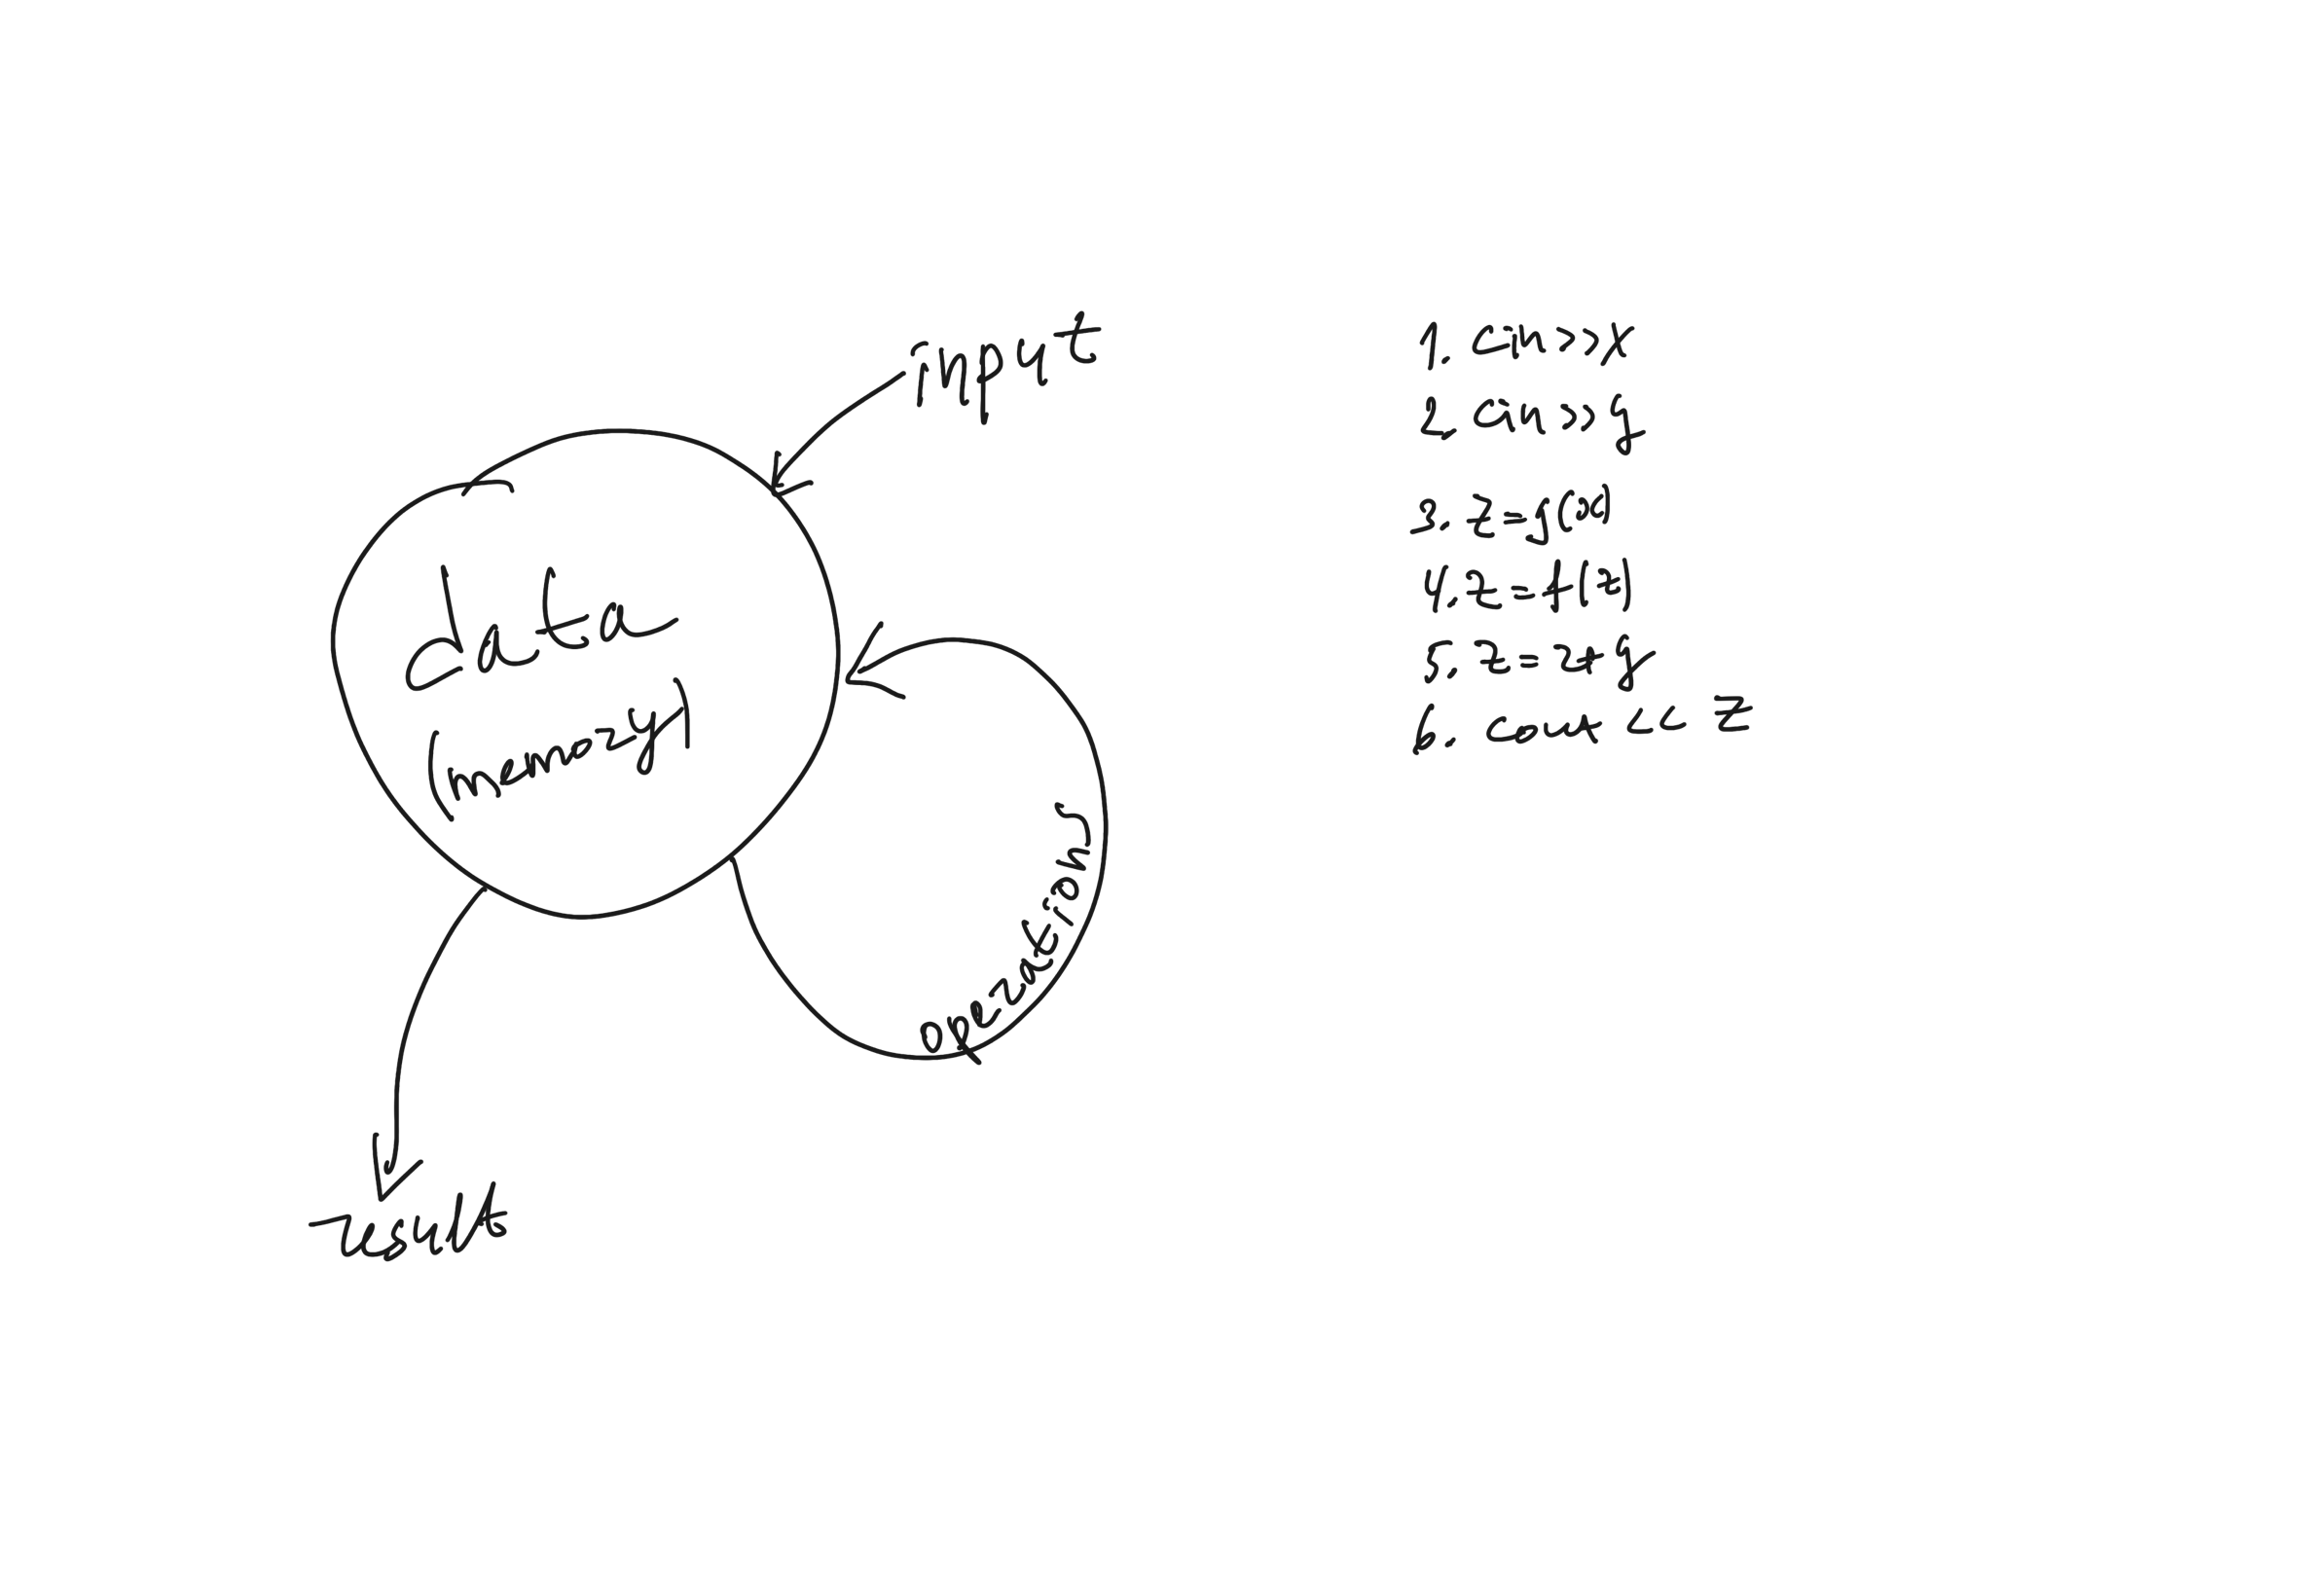 input
data
(memory)
operations
results
1. cin >> x
2. cin >> y
3. z = g(x)
4. z = f(z)
5. z = z + y
6. cout << z